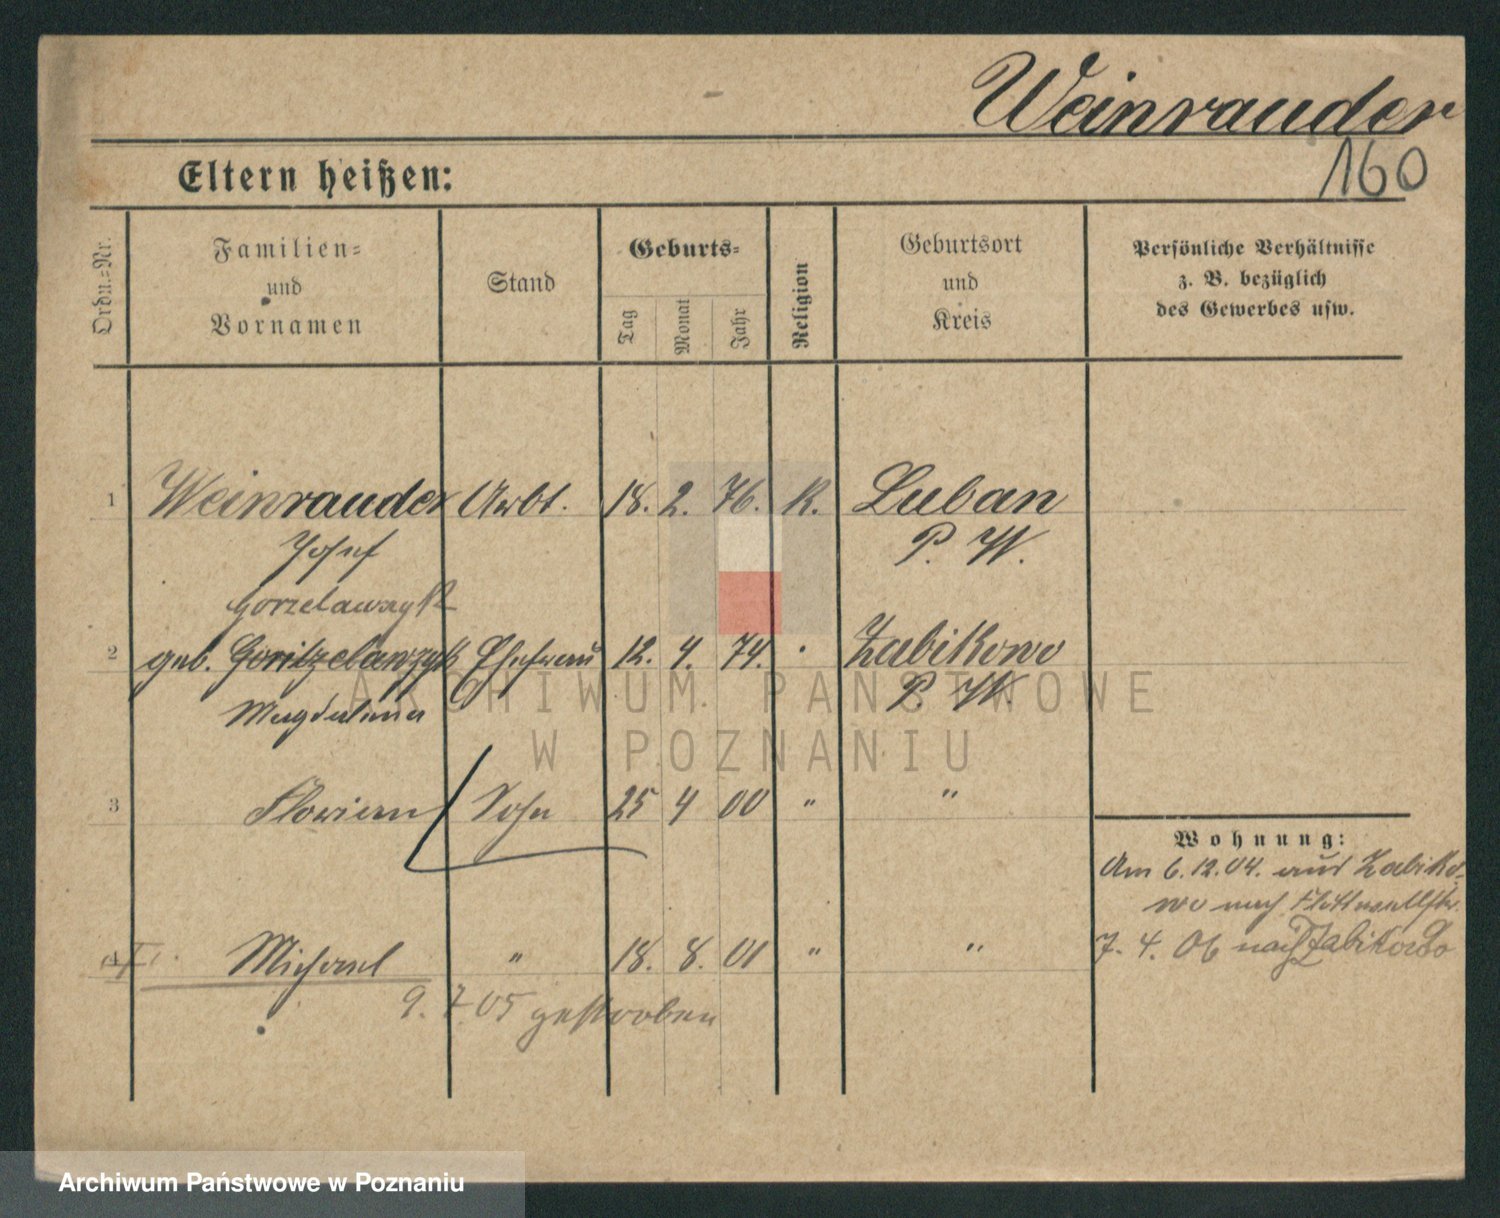 Weinrauder
160
Eltern heißen:
Ordn.=Nr.
Familien=
und
Vornamen
Stand
Geburts=
Tag
Monat
Jahr
Religion
Geburtsort
und
Kreis
Persönliche Verhältnisse
z. B. bezüglich
des Gewerbes usw.
1 Weinrauder Arbt. 18. 2. 76. K. Luban
Josef P. W.
Gorzelawzyk
2 geb. Goritzelawzyk Ehefrau 12. 4. 74. Zabikowo
Magdalena P. W.
3 Florian Sohn 25 4 00 " "
Wohnung:
Am 6.12.04. aus Zabiko-
wo nach Flottwellstr.
4 Michael " 18. 8. 01 " "
7. 4. 06 nach Zabikowo
9. 7 05 gestorben
ARCHIWUM PAŃSTWOWE
W POZNANIU
Archiwum Państwowe w Poznaniu